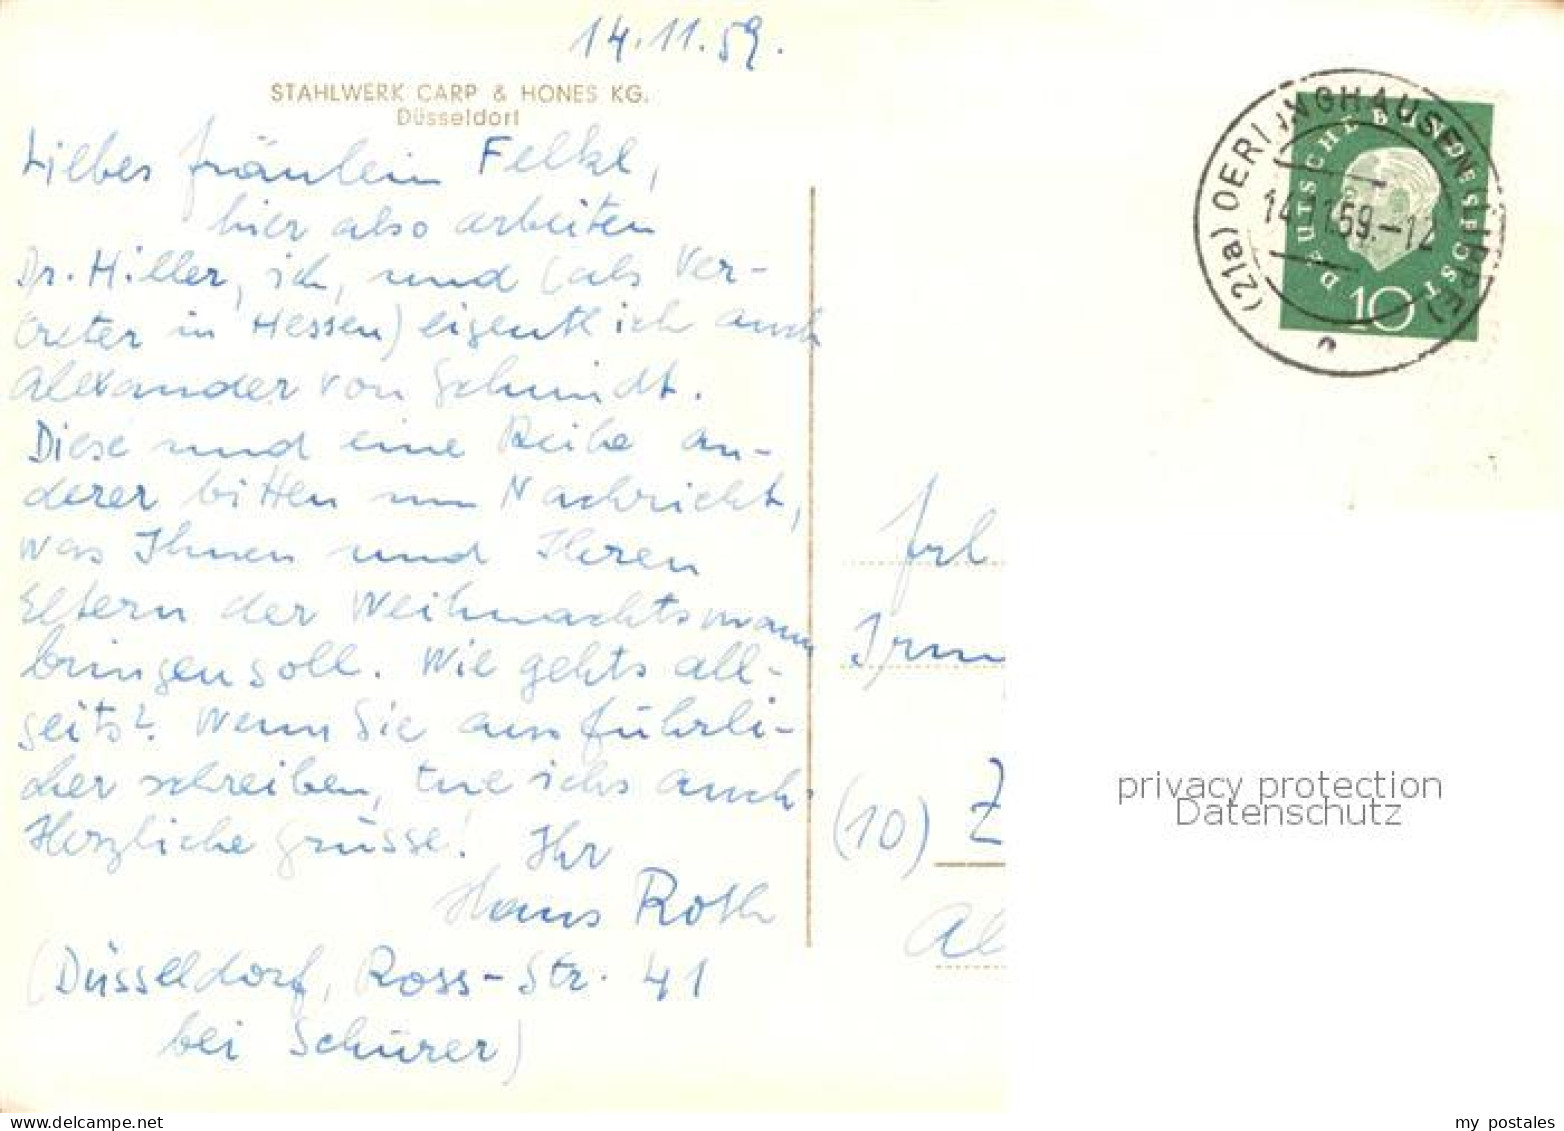 14.11.59.
STAHLWERK CARP & HONES KG.
Düsseldorf
Liebes Fräulein Felkl,
hier also arbeiten
Dr. Hiller, ich, und (als Ver-
treter in Hessen) eigentlich auch
Alexander von Schmidt.
Diese und eine Reihe an-
derer bitten um Nachricht,
was Ihnen und Ihren
Eltern der Weihnachtsmann
bringen soll. Wie gehts all-
seits? Wenn Sie ausführli-
cher schreiben, tue ichs auch.
Herzliche Grüsse! Ihr
Hans Roth
(Düsseldorf, Ross-Str. 41
bei Schürer)
(21a) OERLINGHAUSEN (LIPPE)
14.11.59.-12
e
DEUTSCHE BUNDESPOST
10
Frl
Irm
(10) Z
Al
privacy protection
Datenschutz
Delcampe.net
my_postales